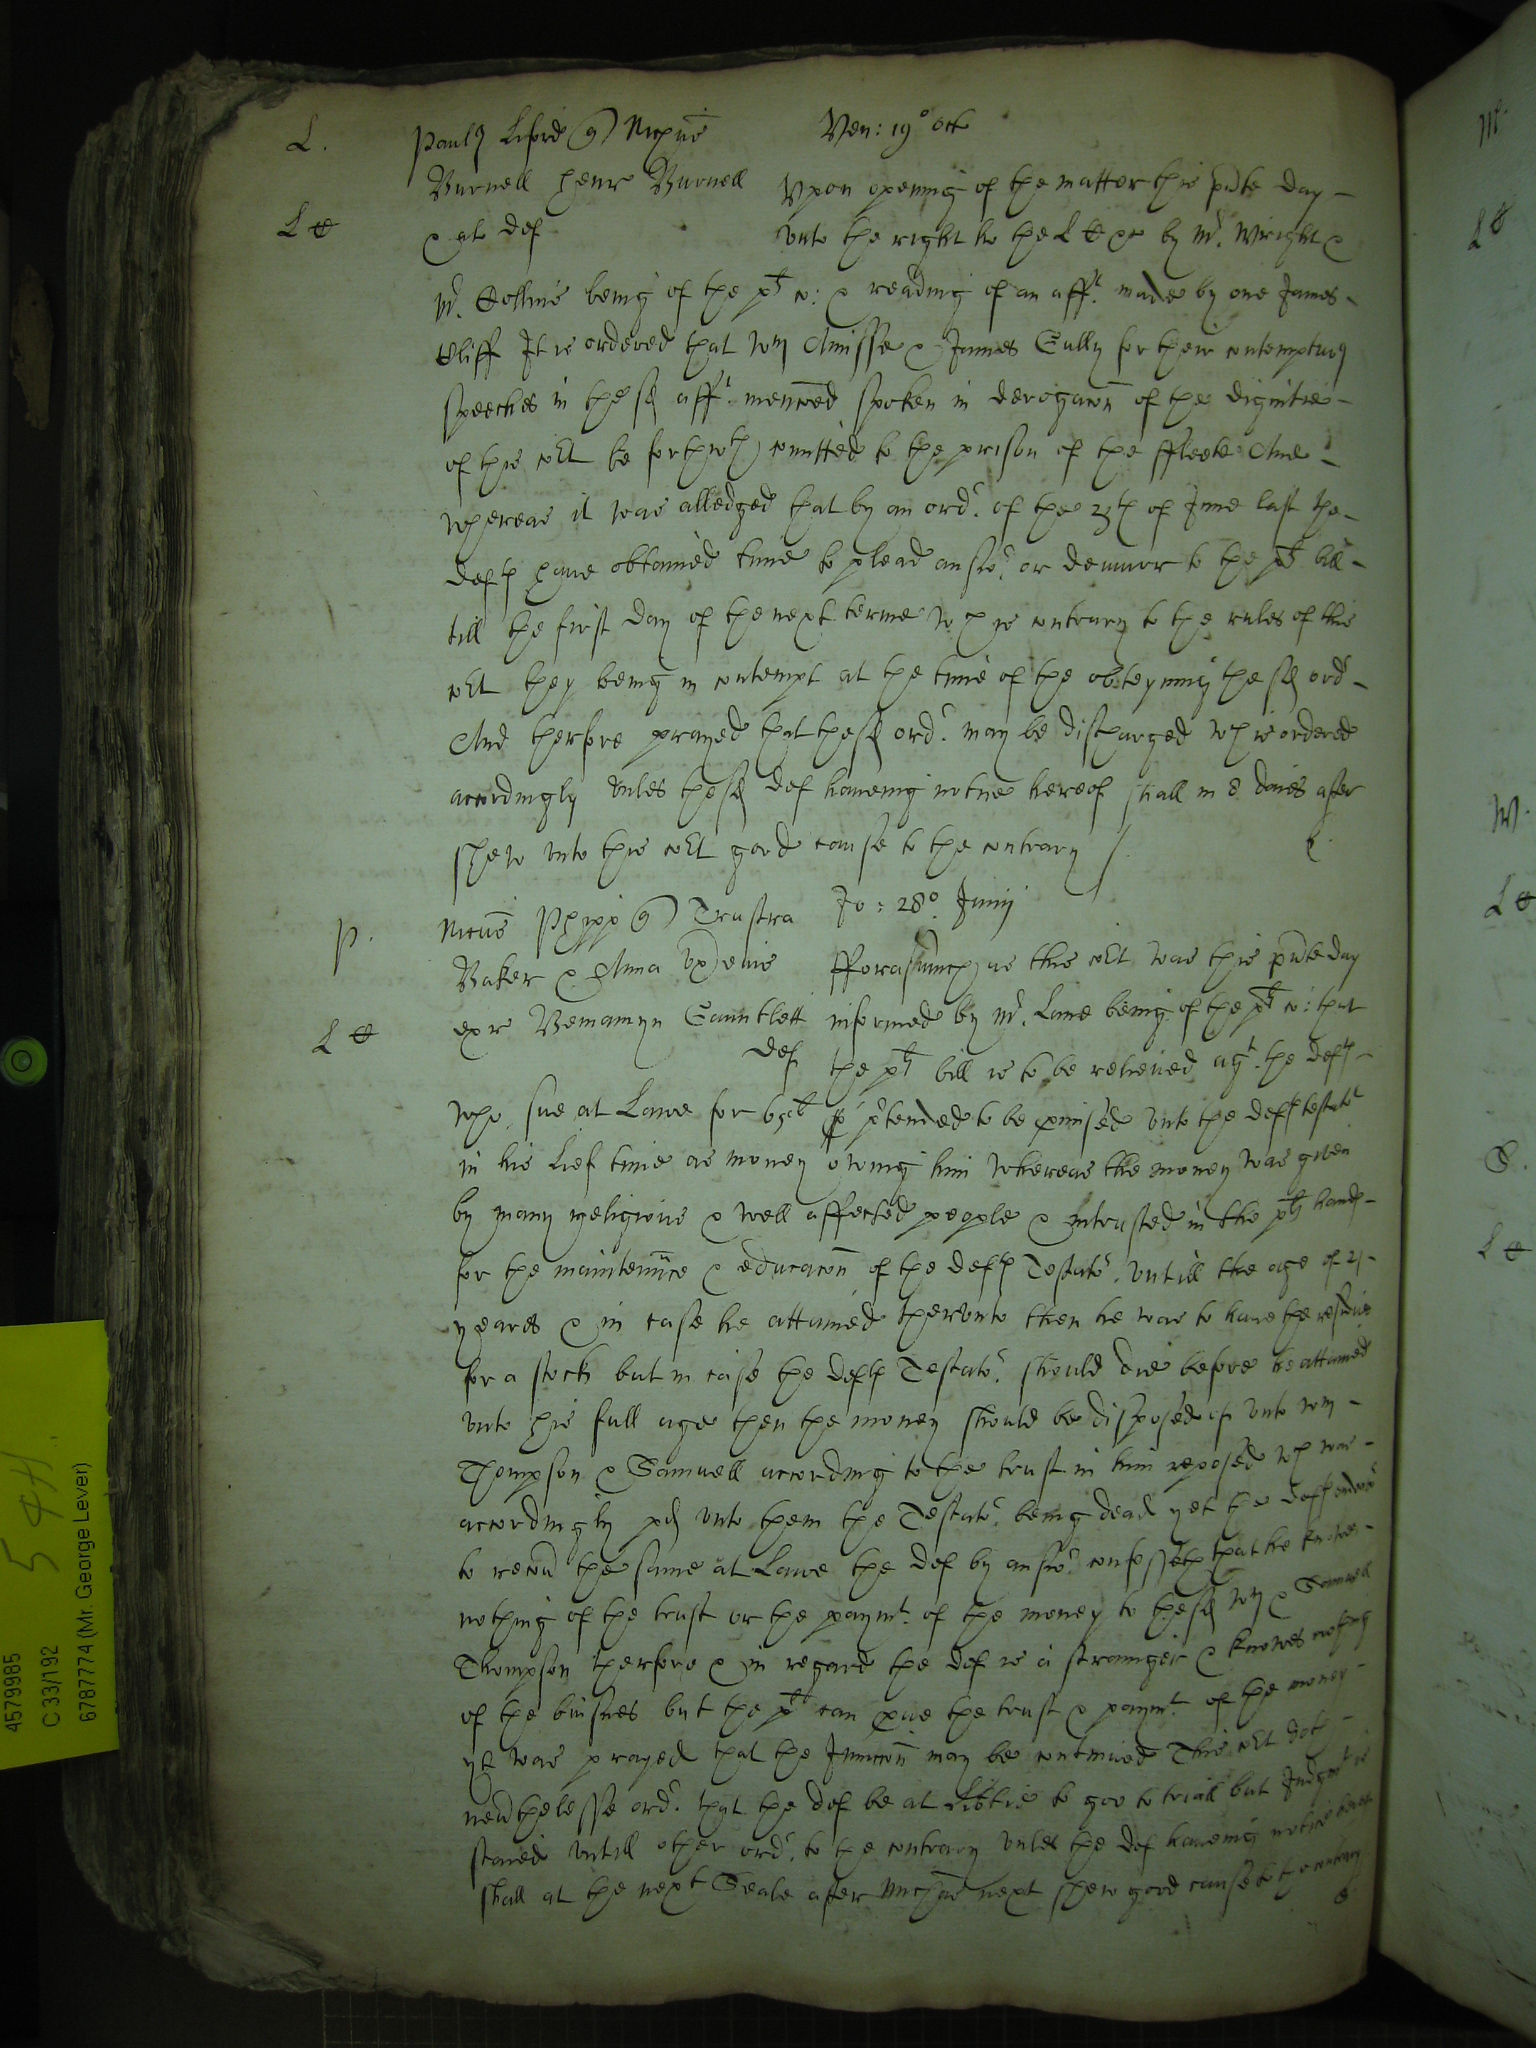 L. Paulꝭ Liford q) Nichus Ven: 19° Octo
Burnell Henr Burnell Vpon opening of the matter this p̃nte day
LC & als def vnto the right ho the L C &c by Mr. Wright &
Mr. Collins being of the plt co: & reading of an afft. made by one James
Cliff It is ordered that Wm & James Gully for their contemptuoꝰ
speeches in the sd afft. menc̃oed spoken in derogac̃on of the dignitie
of this co͠rt be forthwth comitted to the prison of the ffleete And
whereas it was alledged that by an ordr. of the 29th of June last the
deftꝭ haue obtained time to plead answr. or demurr to the plt bill
till the first day of the next terme wch is contrary to the rules of this
co͠rt they being in contempt at the time of the obteyning the sd ordr
And therfore prayed that the sd ordr. may be discharged wch is ordered
accordingly vnles the sd def haueing notice hereof shall in 8 daies after
shew vnto this co͠rt good cause to the contrary /.
P. Nichus Phipp q) Trustra Jo: 28° Junij
Baker & Anna vx) eius fforasmuch as this co͠rt was this p̃nte day
LC exr Beniamyn Gauntlett informed by Mr. Lane being of the plt co: that
def the plt bill is to be releiued agt. the deftꝭ
who sue at Lawe for 65l p̃tended to be p̱mised vnto the deftꝭ testatr
in his lief time as money owing him whereas the money was given
by many religious & well affected people & intrusted in the pltꝭ handꝭ
for the maintennce & educac̃on of the deftꝭ Testatr. vntill the age of 21
yeares & in case he attained thervnto then he was to haue the residue
for a stock but in case the deftꝭ Testatr. should die before he attained
vnto his full age then the money should be disposed of vnto Wm
Thompson & Samuell according to the trust in him reposed wch was
accordingly pd vnto them the Testatr. being dead yet the deft endeavrs
to recoũ the same at Lawe the def by answr. confesseth that he knowes
nothing of the trust or the paymt. of the money to the sd Wm & Samuell
Thompson therfore & in regard the def is a stranger & knowes nothing
of the buisnes but the plt can p̱ue the trust & paymt. of the money
yt was prayed that the Iniuncc̃on may be continued This co͠rt doth
neũthelesse ordr. that the def be at lib̃tie to goe to triall but Judgmt is
staied vntill other ordr. to the contrary vnles the def haueing notice hereof
shall at the next Seale after Mich̃as next shew good cause to the contrary
54H.
4579985
C 33/192
6787774 (Mr. George Lever)